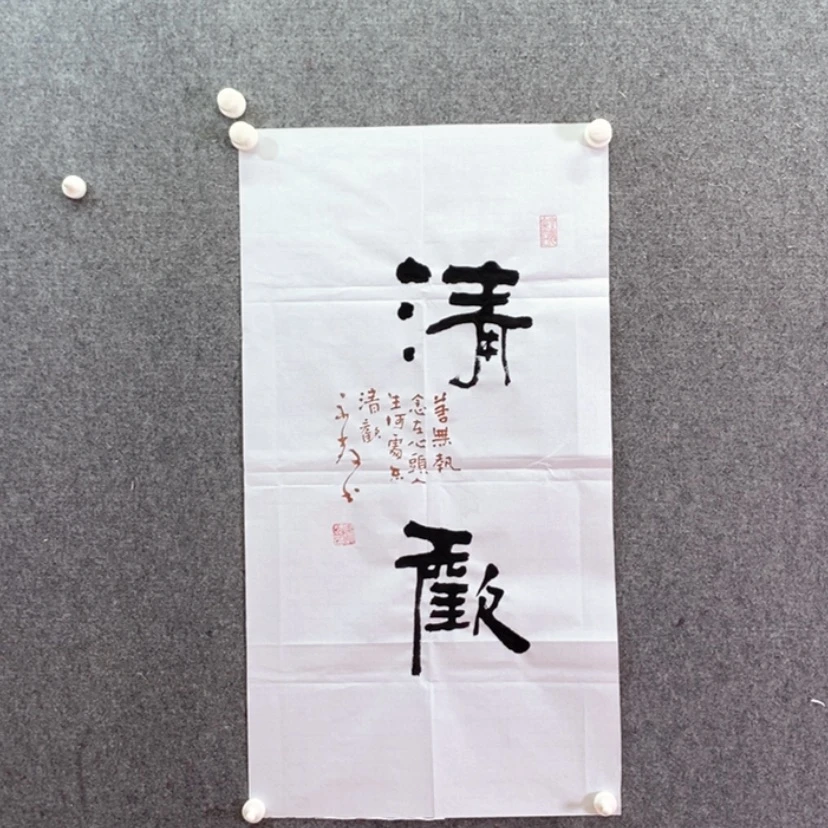 清歡
若無執
念在心頭人
生何處不
清歡